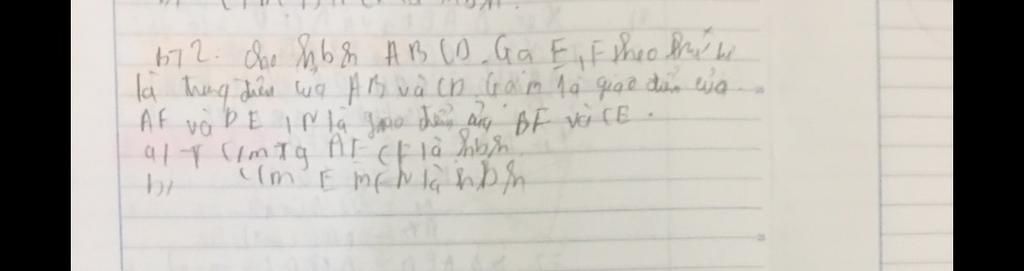 bT2. Cho hbh ABCD. Gọi E, F theo thứ tự
là trung điểm của AB và CD. Gọi M là giao điểm của
AF và DE, N là giao điểm của BF và CE.
a) C/m Tg AECF là hbh
b) C/m EMFN là hbh